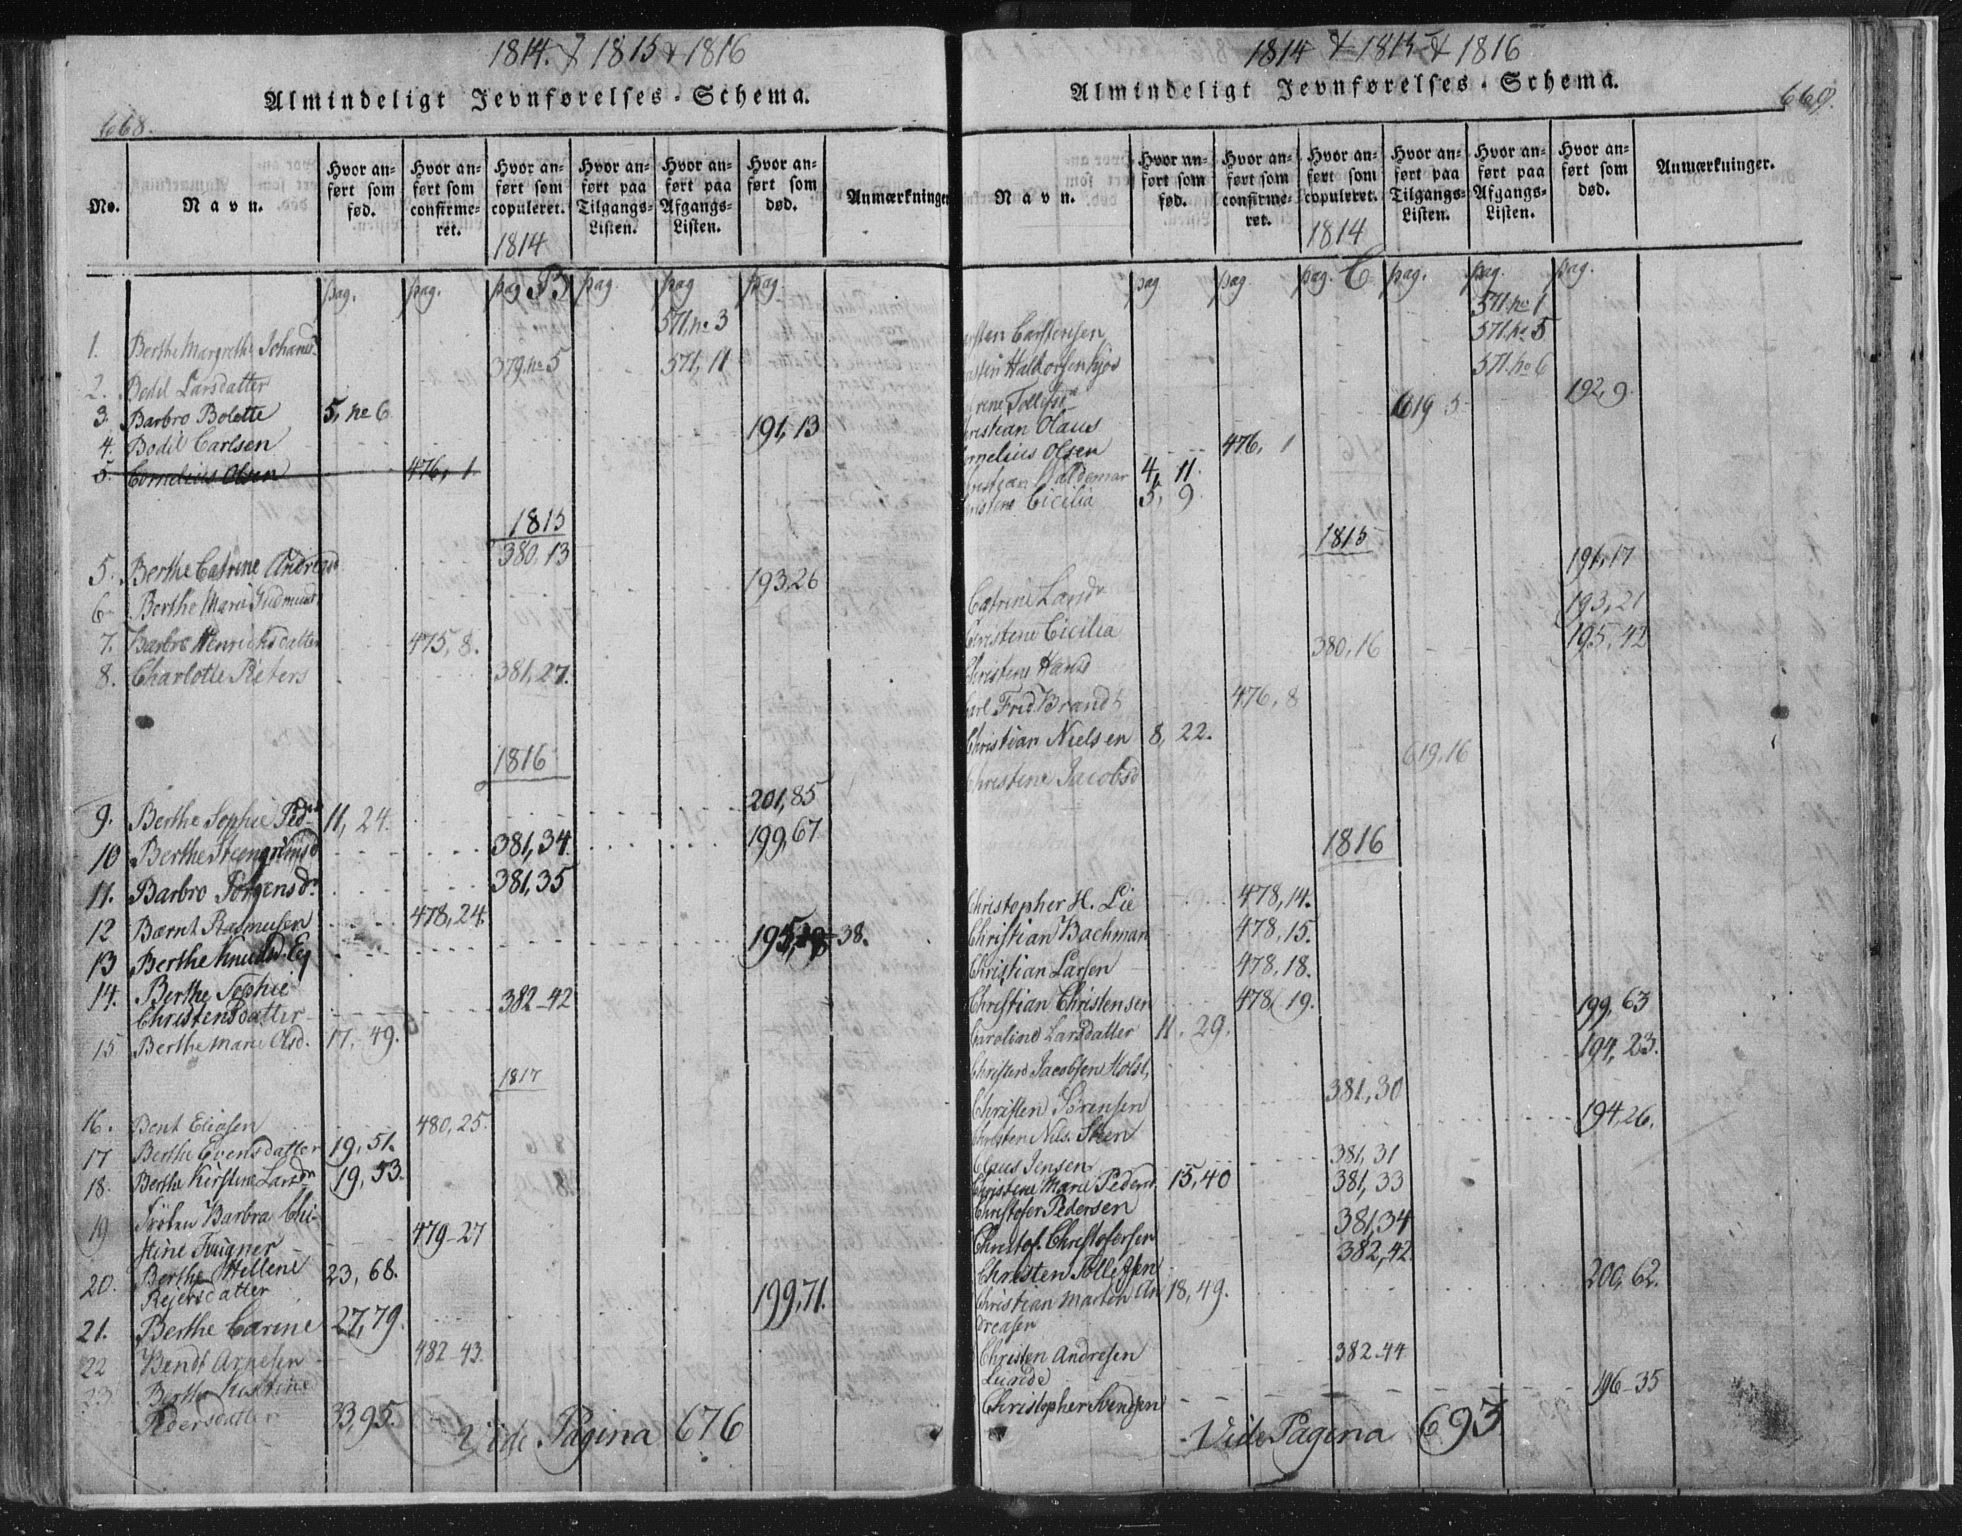 1814. & 1815 & 1816
Almindeligt Jevnførelses-Schema.
668.
No.
Navn.
Hvor anført som fød.
Hvor anført som confirmeret.
Hvor anført som copuleret.
Hvor anført paa Tilgangs-Listen.
Hvor anført paa Afgangs-Listen.
Hvor anført som død.
Anmærkninger
1814
B
pag. pag. pag pag. pag pag.
1. Berthe Margrethe Johannsd 571. no 3
2. Bodil Larsdatter 379. no 5 571, 11
3. Barbro Bolette 5, no 6
4. Bodil Carlsen 191, 13
5. Cornelius Olsen 476, 1.
1815
5. Berthe Catrine Andreasd 380, 13
6. Berthe Marie Gudmunds 193, 26
7. Barbro Henrichsdatter 475, 8.
8. Charlotte Peters 381, 27.
1816
9. Berthe Sophie Pedr 11, 24. 201, 85
10 Berthe Steengrimsd 381, 34. 199, 67
11. Barbro Jørgensdr 381, 35
12 Bærnt Rasmusen 478, 24.
13 Berthe Knudsd. Eg 195, 38.
14. Berthe Sophie
Christensdatter 382-42
15 Berthe Marie Olsd. 17, 49.
1817
16. Bent Eliasen 480, 25.
17 Berthe Evensdatter 19, 51.
18. Berthe Kirstine Larsdr 19, 53.
19 Frøken Barbra Chi-
stine Traigner 479-27
20. Berthe Hellene 23, 68.
Rejersdatter 199, 71.
21. Berthe Carine 27, 79.
22 Bendt Arnesen 482-43.
23 Berthe Kistine
Pedersdatter 33, 95.
Vide Pagina 676
1814 & 1815 & 1816
Almindeligt Jevnførelses-Schema.
669.
Navn.
Hvor anført som fød.
Hvor anført som confirmeret.
Hvor anført som copuleret.
Hvor anført paa Tilgangs-Listen.
Hvor anført paa Afgangs-Listen.
Hvor anført som død.
Anmærkninger.
1814
C
pag pag pag. pag. pag. pag.
arsten Carstensen 571. no 1
astin Haldorsen Kjøs 571. no 5
571. no 6
rine Tollefsd 192, 9
hristian Olaus 619 5
ornelius Olsen 476, 1
hristian Valdemar 4, 11.
hristene Cicilia 5, 9
1815
Catrine Larsdr 191, 17
Christene Cicilia 193, 21
Christine Hansd 380, 16 195, 42
Carl Frid Brandt 476, 8
Christian Nielsen 8, 22.
Christine Jacobsd 619, 16
1816
Christopher H. Lie 478, 14.
Christian Bachman 478, 15.
Christian Larsen 478, 18.
Christian Christensen 478, 19.
Caroline Larsdatter 11. 29. 199, 63
Christen Jacobsen Holst, 194, 23.
Christen Sørensen 381, 30
Christen Nils. Steen 194, 26.
Claus Jensen 381, 31
Christene Marie Pedersd 15, 40 381, 33
Christofer Pedersen 381, 34
Christof. Christofersen 382, 42
Christen Tollefsen 200, 62.
Christian Martin An 18, 49.
dreasen
Christen Andresen 382-44
Christopher Svendsen 196-35
Vide Pagina 693